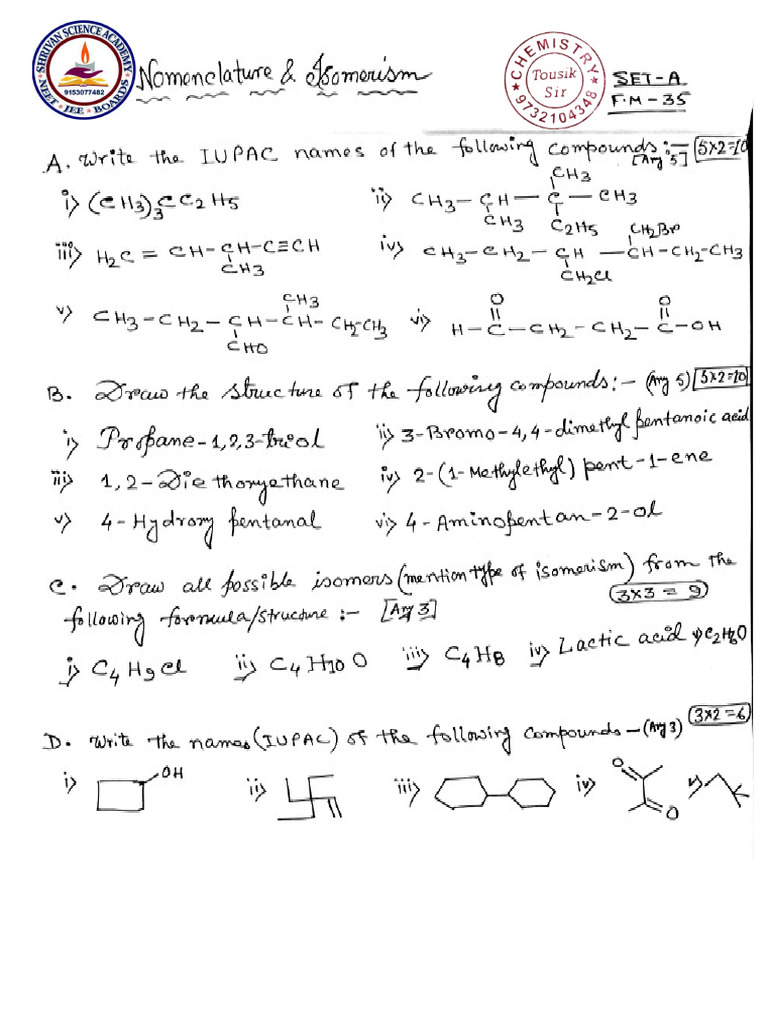 SHRIVAN SCIENCE ACADEMY
9153077482
NEET • JEE • BOARDS
Nomenclature & Isomerism
CHEMISTRY
Tousik
Sir
9732104348
SET-A
F.M-35
A. Write the IUPAC names of the following compounds:- 5×2=10
[Any 5]
i> (CH3)3CC2H5
ii> CH3-CH-C-CH3
CH3
CH3 C2H5
iii> H2C=CH-CH-C≡CH
CH3
iv> CH3-CH2-CH-CH-CH2-CH3
CH2Br
CH2Cl
v> CH3-CH2-CH-CH-CH2-CH3
CH3
CHO
vi> H-C-CH2-CH2-C-OH
O O
B. Draw the structure of the following compounds:- (Any 5) 5×2=10
i> Propane-1,2,3-triol
ii> 3-Bromo-4,4-dimethyl pentanoic acid
iii> 1,2-Diethoxyethane
iv> 2-(1-Methylethyl) pent-1-ene
v> 4-Hydroxy pentanal
vi> 4-Aminopentan-2-ol
C. Draw all possible isomers (mention type of isomerism) from the
following formula/structure:- [Any 3] 3×3=9
i> C4H9Cl ii> C4H10O iii> C4H8 iv> Lactic acid v> C2H6O
D. Write the names (IUPAC) of the following compounds-(Any 3) 3×2=6
i> OH ii> iii> iv> O O v>